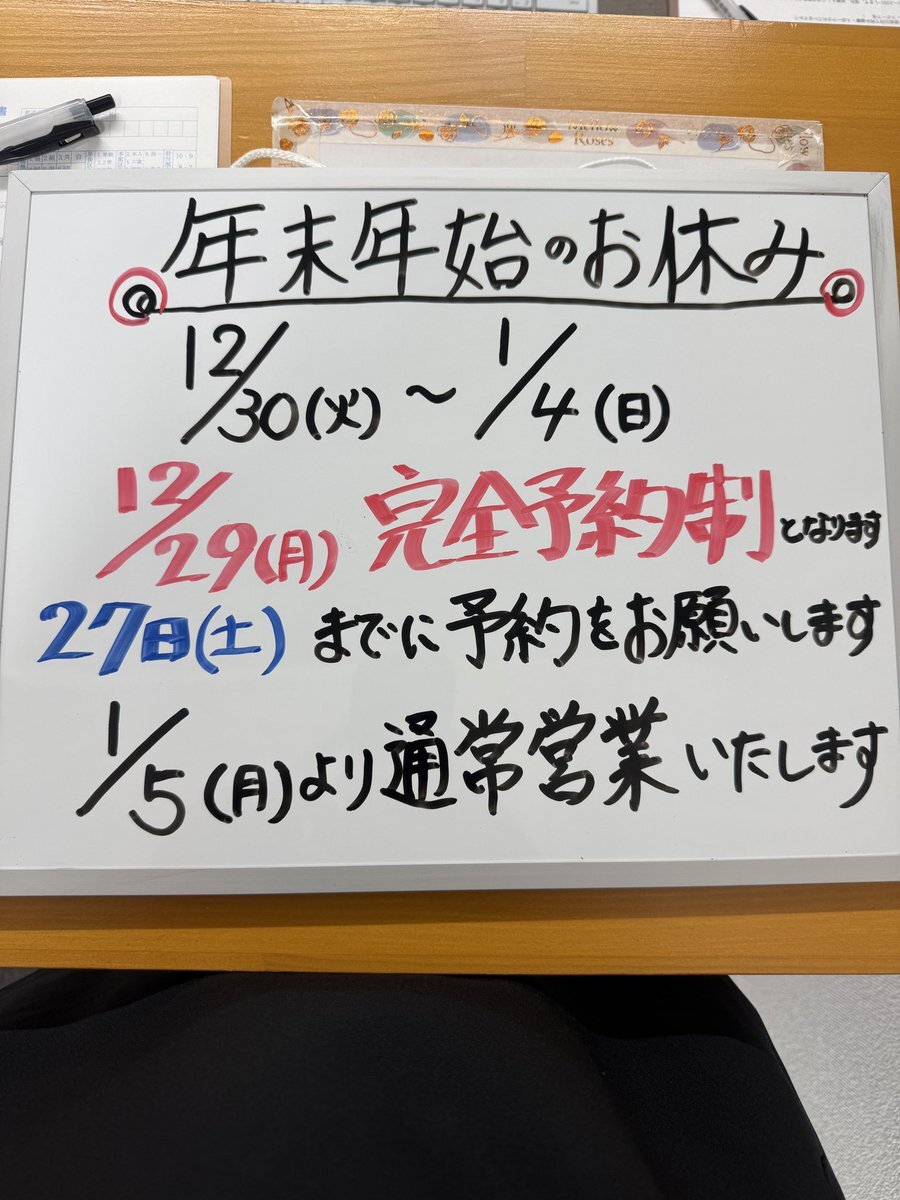 Mellow
Roses
年末年始のお休み
12/30(火)～1/4(日)
12/29(月)完全予約制となります
27日(土)までに予約をお願いします
1/5(月)より通常営業いたします